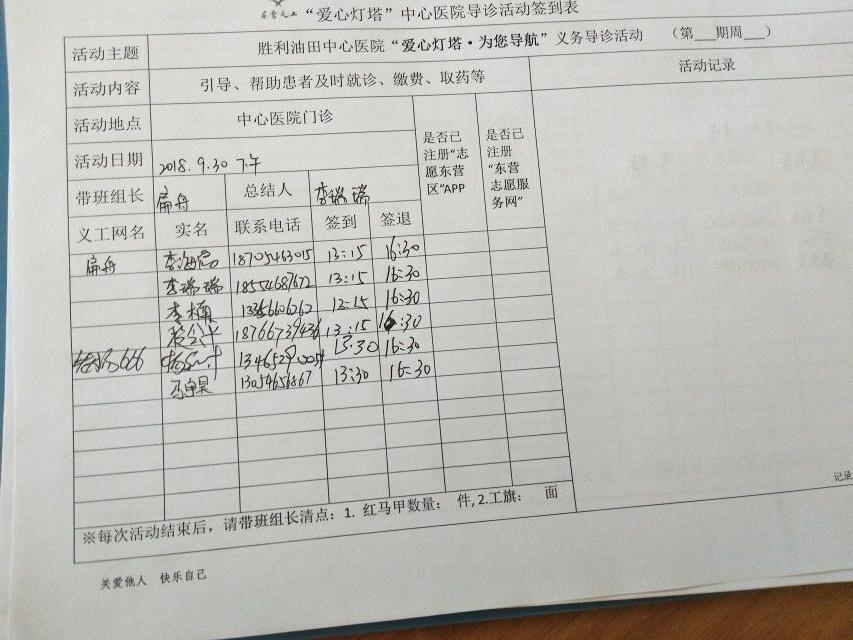 东营义工 “爱心灯塔”中心医院导诊活动签到表
活动主题 胜利油田中心医院“爱心灯塔·为您导航”义务导诊活动 （第___期周___）
活动内容 引导、帮助患者及时就诊、缴费、取药等 活动记录
活动地点 中心医院门诊
是否已注册“志愿东营区”APP
是否已注册“东营志愿服务网”
活动日期 2018.9.30 下午
带班组长 扁舟 总结人 李瑞瑞
义工网名 实名 联系电话 签到 签退
扁舟 18705463015 13:15 16:30
李瑞瑞 18554687672 13:15 16:30
李楠 13356606262 12:15 16:30
18766739436 13:15 16:30
666 13:30 16:30
13054656867 13:30 16:30
※每次活动结束后，请带班组长清点：1. 红马甲数量： 件, 2.工旗： 面
记录
关爱他人 快乐自己